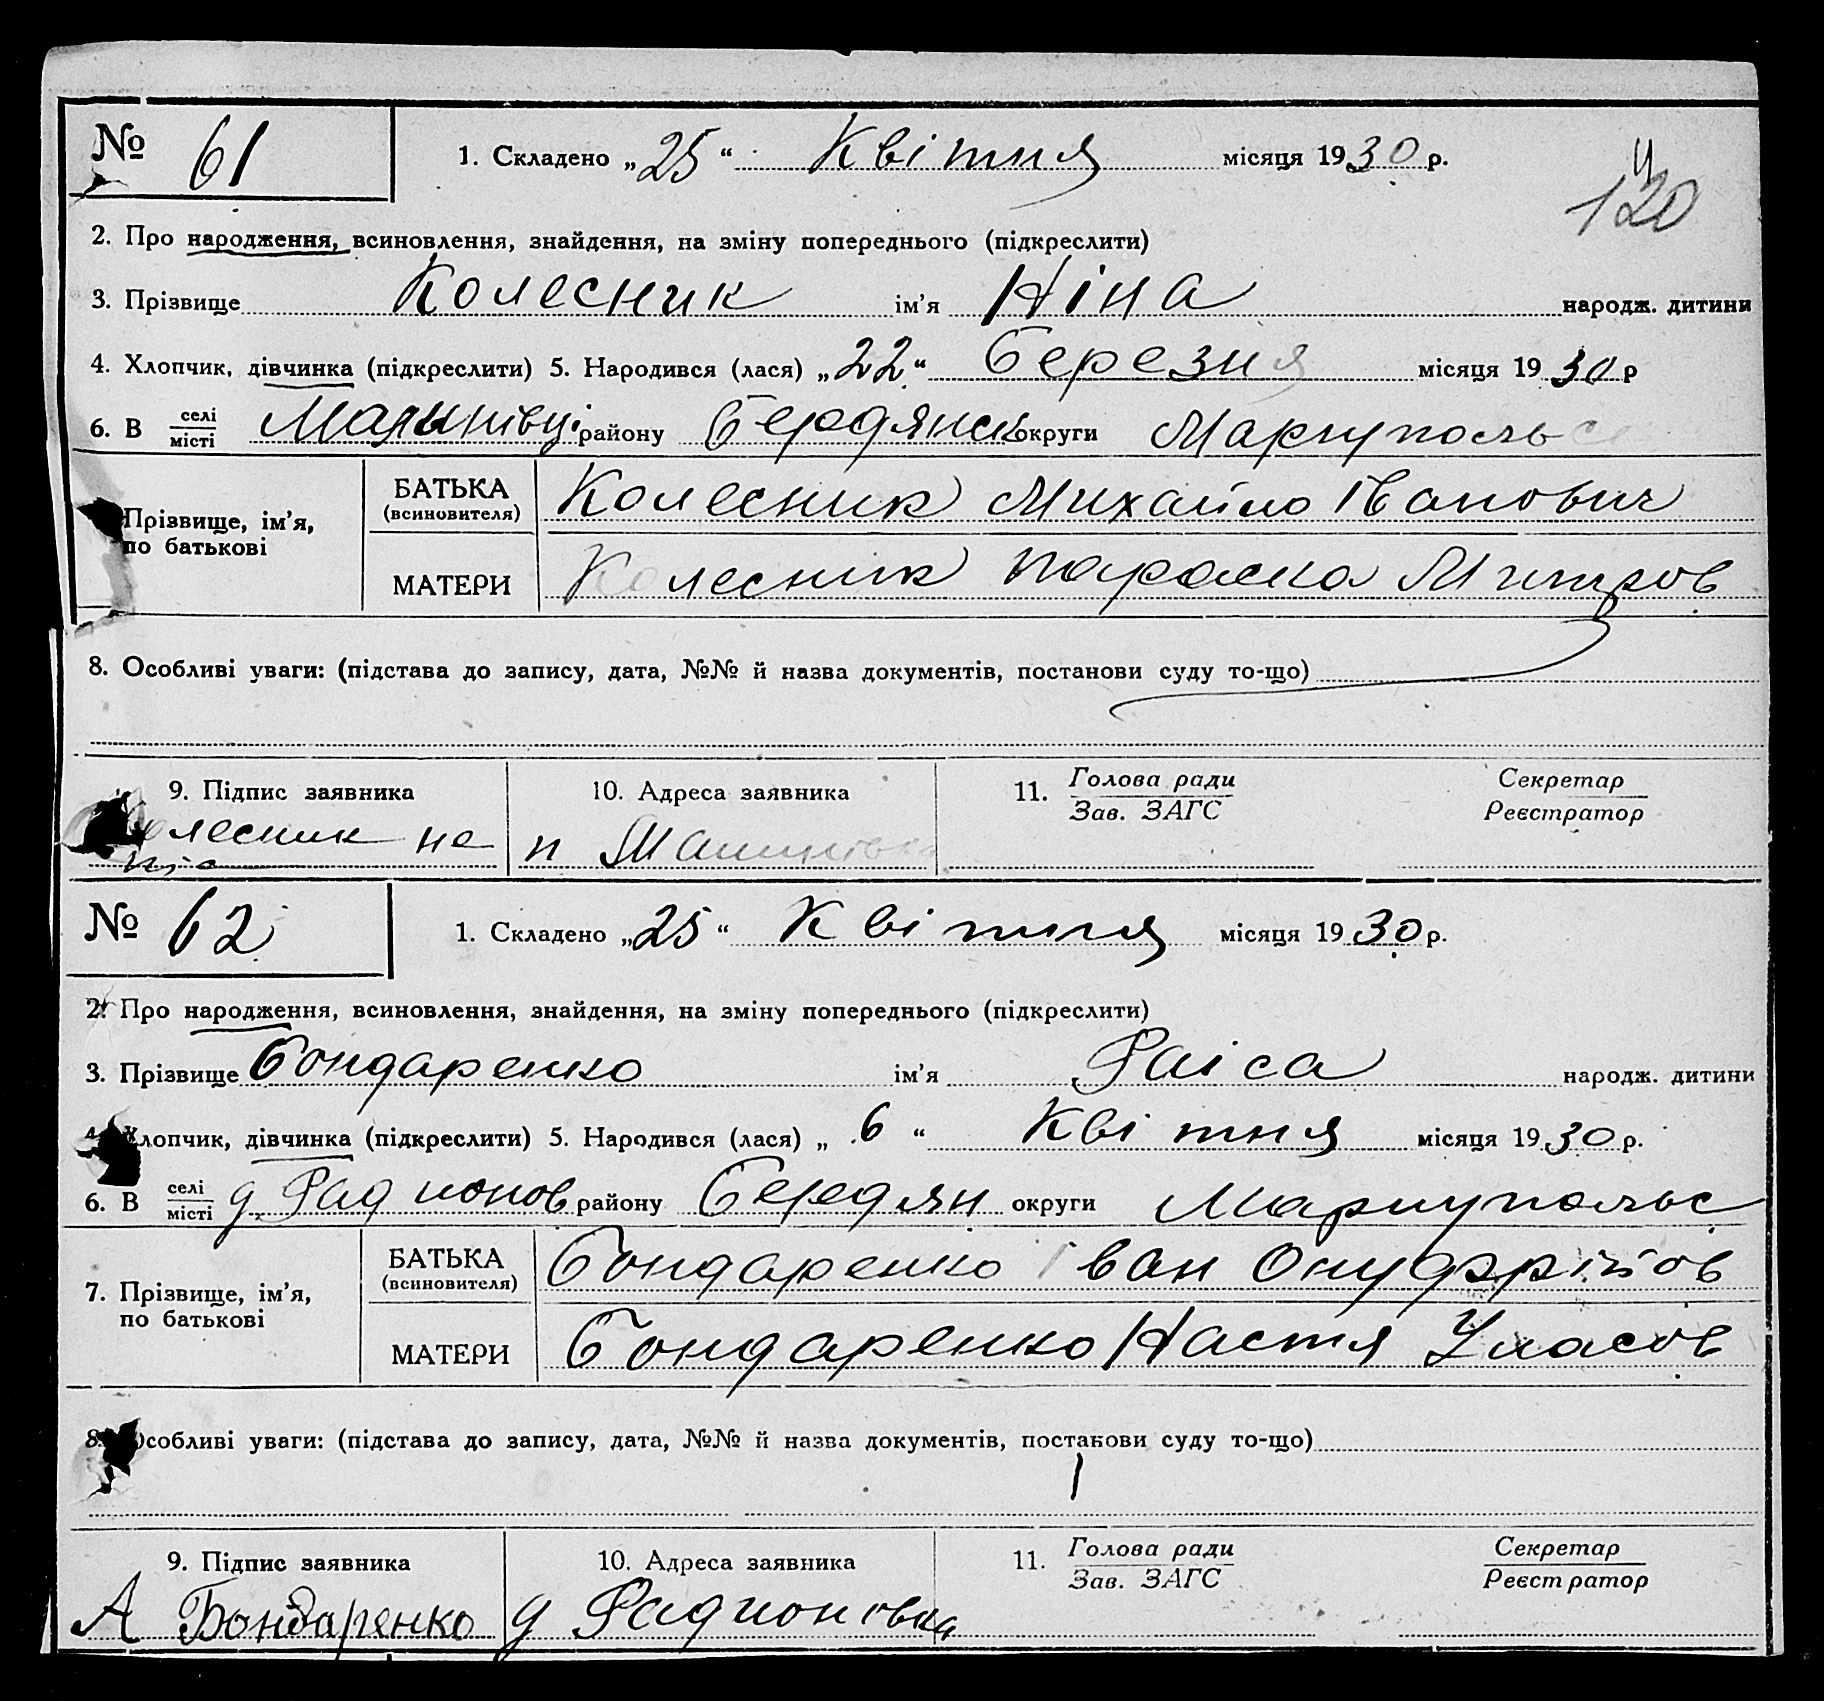 № 61 1. Складено „25“ Квітня місяця 1930 р.
120
2. Про народження, всиновлення, знайдення, на зміну попереднього (підкреслити)
3. Прізвище Колесник ім’я Ніна народж. дитини
4. Хлопчик, дівчинка (підкреслити) 5. Народився (лася) „22“ Березня місяця 1930 р
6. В селі/місті району Бердянськ округи Маріупольс
Прізвище, ім’я, по батькові
БАТЬКА (всиновителя) Колесник Михайло Іванович
МАТЕРИ Колесник Параска Митров
8. Особливі уваги: (підстава до запису, дата, №№ й назва документів, постанови суду то-що)
9. Підпис заявника 10. Адреса заявника 11. Голова ради Секретар
Зав. ЗАГС Реєстратор
Колесник не н
№ 62 1. Складено „25“ Квітня місяця 1930 р.
2. Про народження, всиновлення, знайдення, на зміну попереднього (підкреслити)
3. Прізвище Бондаренко ім’я Раіса народж. дитини
4. Хлопчик, дівчинка (підкреслити) 5. Народився (лася) „6“ Квітня місяця 1930 р.
6. В селі/місті д Радионов району Бердян округи Мариупольс
7. Прізвище, ім’я, по батькові
БАТЬКА (всиновителя) Бондаренко Іван Онуфрійов
МАТЕРИ Бондаренко Настя Уласов
8. Особливі уваги: (підстава до запису, дата, №№ й назва документів, постанови суду то-що)
9. Підпис заявника 10. Адреса заявника 11. Голова ради Секретар
Зав. ЗАГС Реєстратор
А Бондаренко д Радионовка